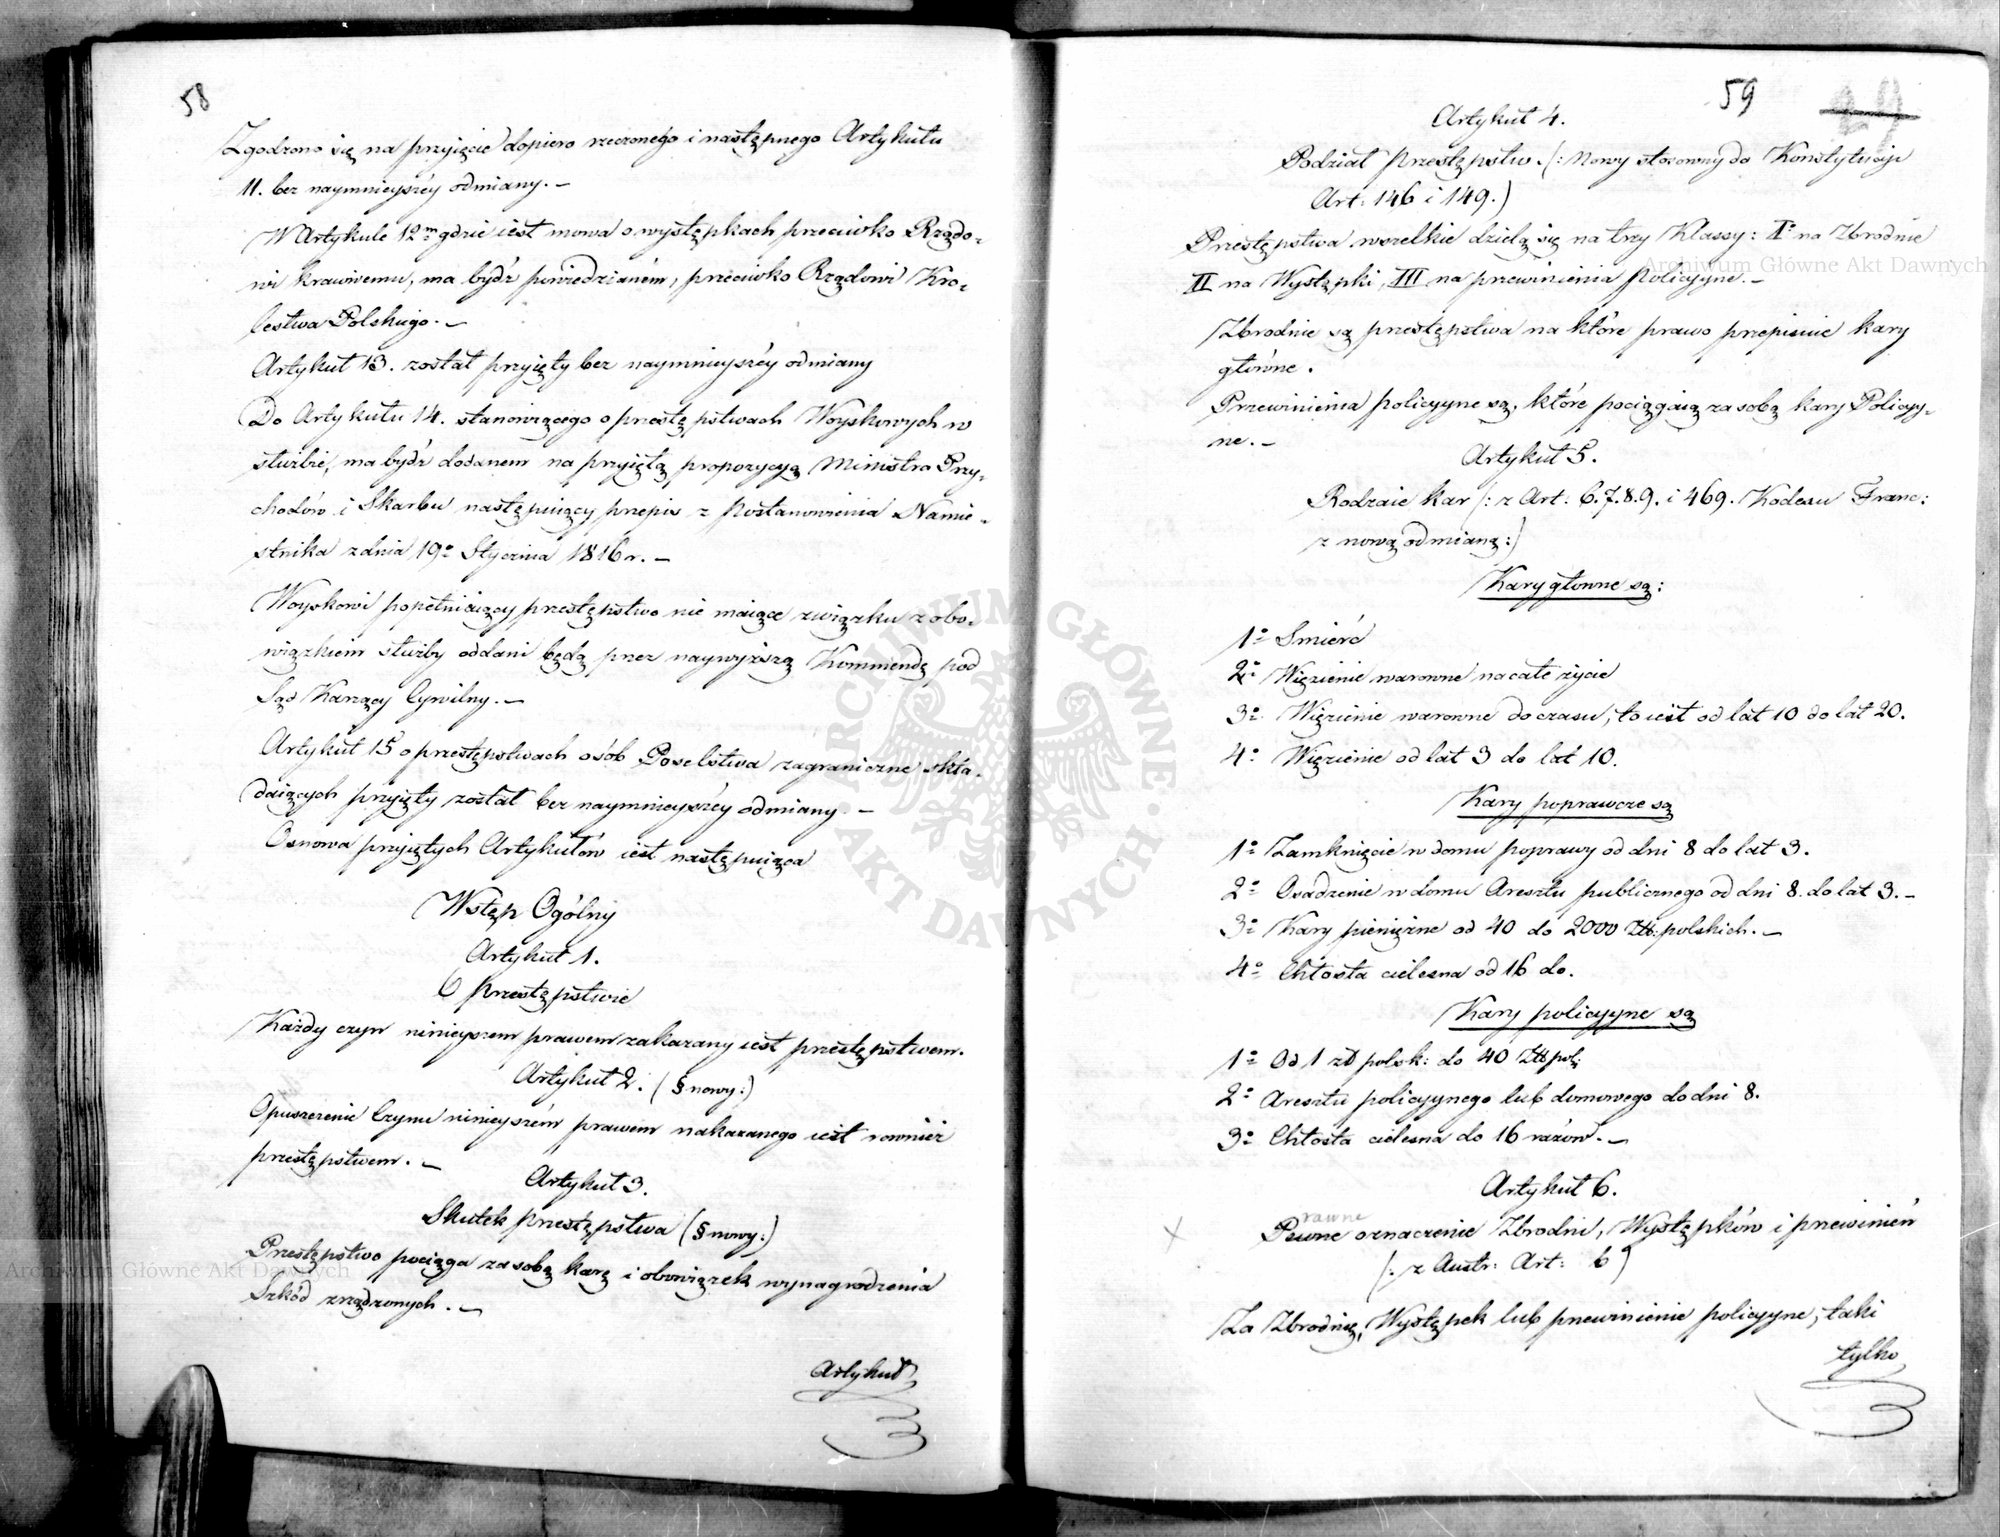 58
Zgodzono się na przyięcie dopiero rzeczonego i następnego Artykułu
11. bez naymnieyszéy odmiany. –
W Artykule 12m gdzie iest mowa o występkach przeciwko Rządo-
wi kraiowemu, ma bydź powiedzianém, przeciwko Rządowi Kró-
lestwa Polskiego. –
Artykuł 13. został przyięty bez naymnieyszéy odmiany
Do Artykułu 14. stanowiącego o przestępstwach Woyskowych w
służbie, ma bydź dodanem na przyiętą propozycyą Ministra Przy-
chodów i Skarbu następuiący przepis z Postanowienia Namie-
stnika z dnia 19o Stycznia 1816 r. –
Woyskowi popełniaiący przestępstwo nie maiące związku z obo-
wiązkiem służby oddani będą przez naywyższą Kommendę pod
Sąd Karzący Cywilny. –
Artykuł 15 o przestępstwach osób Poselstwa zagraniczne skła-
daiących przyięty został bez naymnieyszéy odmiany –
Osnowa przyiętych Artykułów iest następuiąca
Wstęp Ogólny
Artykuł 1.
O przestępstwie
Każdy czyn ninieyszem prawem zakazany iest przestępstwem.
Artykuł 2. (§ nowy:)
Opuszczenie Czynu ninieyszém prawem nakazanego iest rownież
przestępstwem. –
Artykuł 3.
Skutek przestępstwa (§ nowy:)
Przestępstwo pociąga za sobą karę i obowiązek wynagrodzenia
Szkód zrządzonych. –
Artykuł
59
29
Artykuł 4.
Podział przestępstw. (: Nowy stosowny do Konstytucyi
Art: 146 i 149.)
Przestępstwa wszelkie dzielą się na trzy Klassy: Io na Zbrodnie
II na Występki, III na przewinienia Policyyne. –
Zbrodnie są przestępstwa na które prawo przepisuie kary
główne.
Przewinienia policyyne są, które pociągaią za sobą kary Policyy-
ne. –
Artykuł 5.
Rodzaie kar (: z Art: 6.7.8.9. i 469. Kodexu Franc:
z nową odmianą :)
Kary głowne są:
1o Smierć
2o Więzienie warowne na całe życie
3o Więzienie warowne do czasu, to iest od lat 10 do lat 20.
4o Więzienie od lat 3 do lat 10.
Kary poprawcze są
1o Zamknięcie w domu poprawy od dni 8 do lat 3.
2o Osadzenie w domu Aresztu publicznego od dni 8. do lat 3. –
3o Kary pieniężne od 40 do 2000 Złł: polskich. –
4o Chłosta cielesna od 16 do.
Kary policyyne są
1o Od 1 zł polsk: do 40 Złł pol:
2o Aresztu policyynego lub domowego do dni 8.
3o Chłosta cielesna do 16 razów. –
Artykuł 6.
rawne
Pewne oznaczenie Zbrodni, Występków i przewinień
(: z Austr: Art: 6)
Za Zbrodnię, Występek lub przewinienie policyyne, taki
tylko
ARCHIWUM GŁÓWNE AKT DAWNYCH
Archiwum Główne Akt Dawnych
Archiwum Główne Akt Dawnych